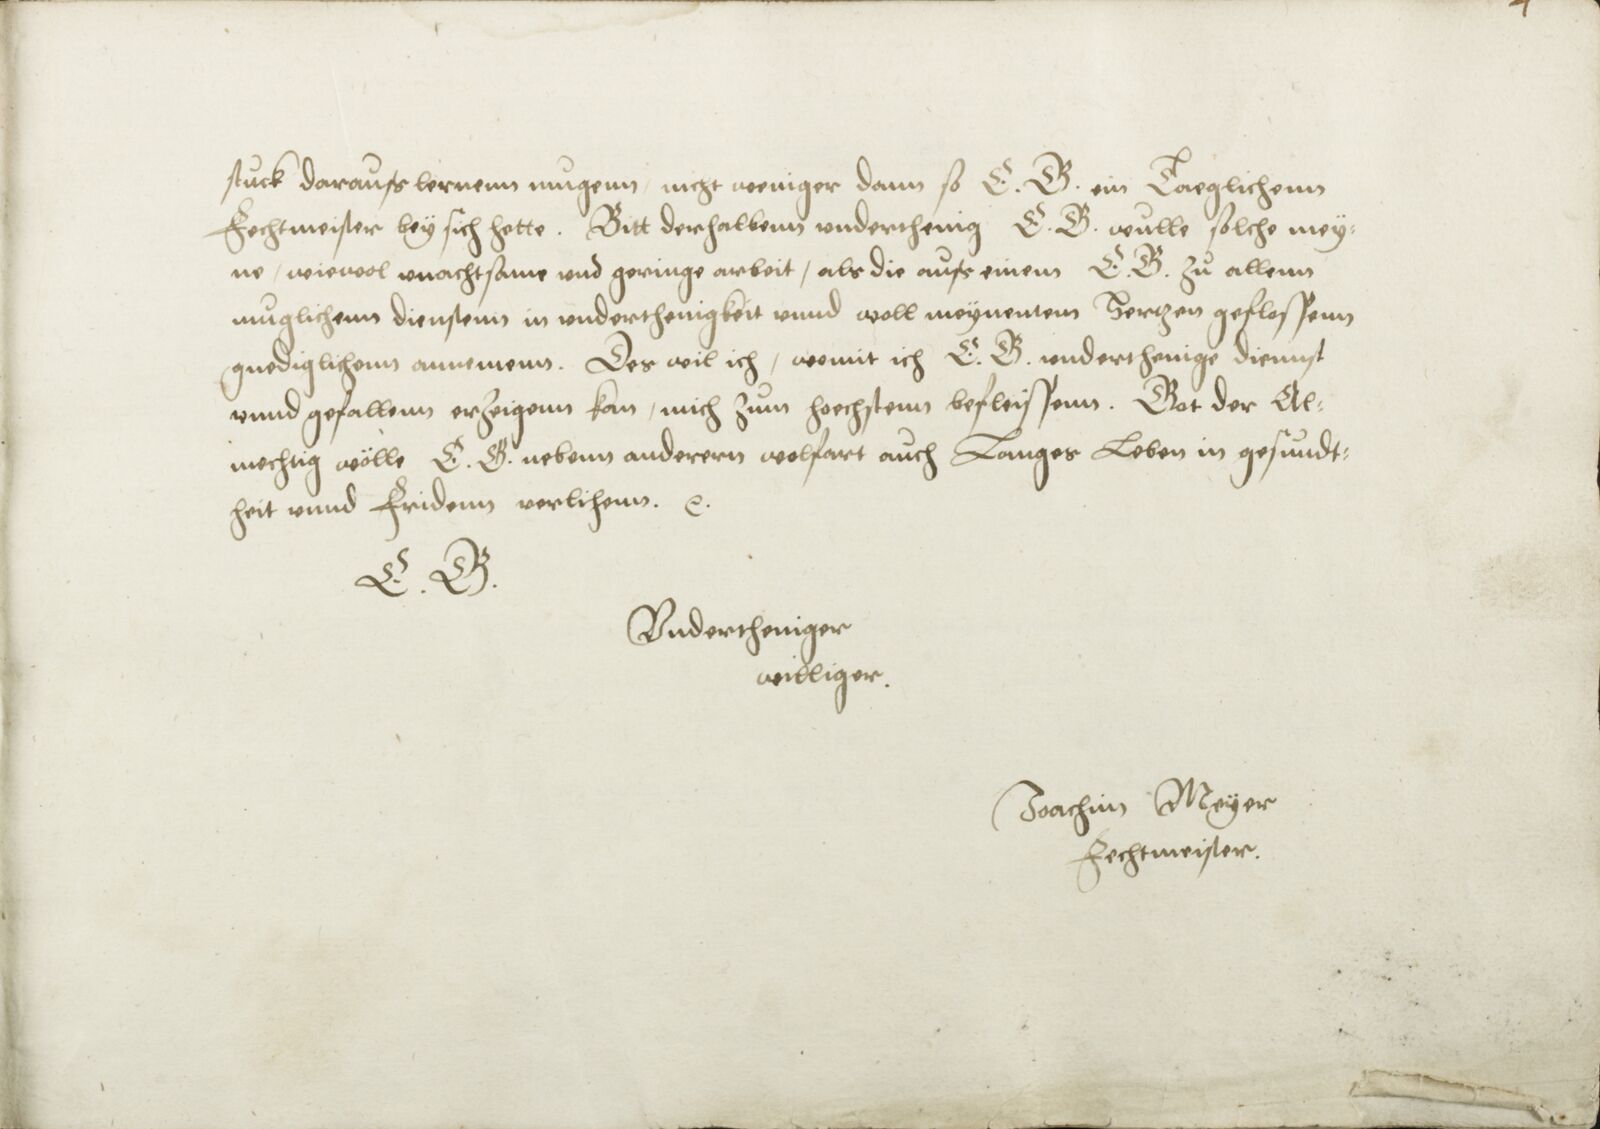 4
stuck daraufs lernenn mugenn / nicht weniger dann so E. G. ein Taeglichenn
Fechtmeister bey sich hette. Bitt derhalbenn underthenig E. G. wulle solche mey=
ne / wiewol unachtsame und geringe arbeit / als die aufs einem E. G. zu allenn
muglichenn dienstenn in underthenigkeit unnd woll meynentem Hertzen geflossenn
gnediglichenn annemenn. Des wil ich / womit ich E. G. underthenige diennst
unnd gefallenn erzeigenn kan / mich zum hoechstenn befleissenn. Got der Al=
mechtig wölle E. G. nebenn anderern wolfart auch Langes Leben in gesundt=
heit unnd Fridenn verlihenn. ꝛc.
E. G.
Undertheniger
williger.
Joachim Meyer
Fechtmeister.